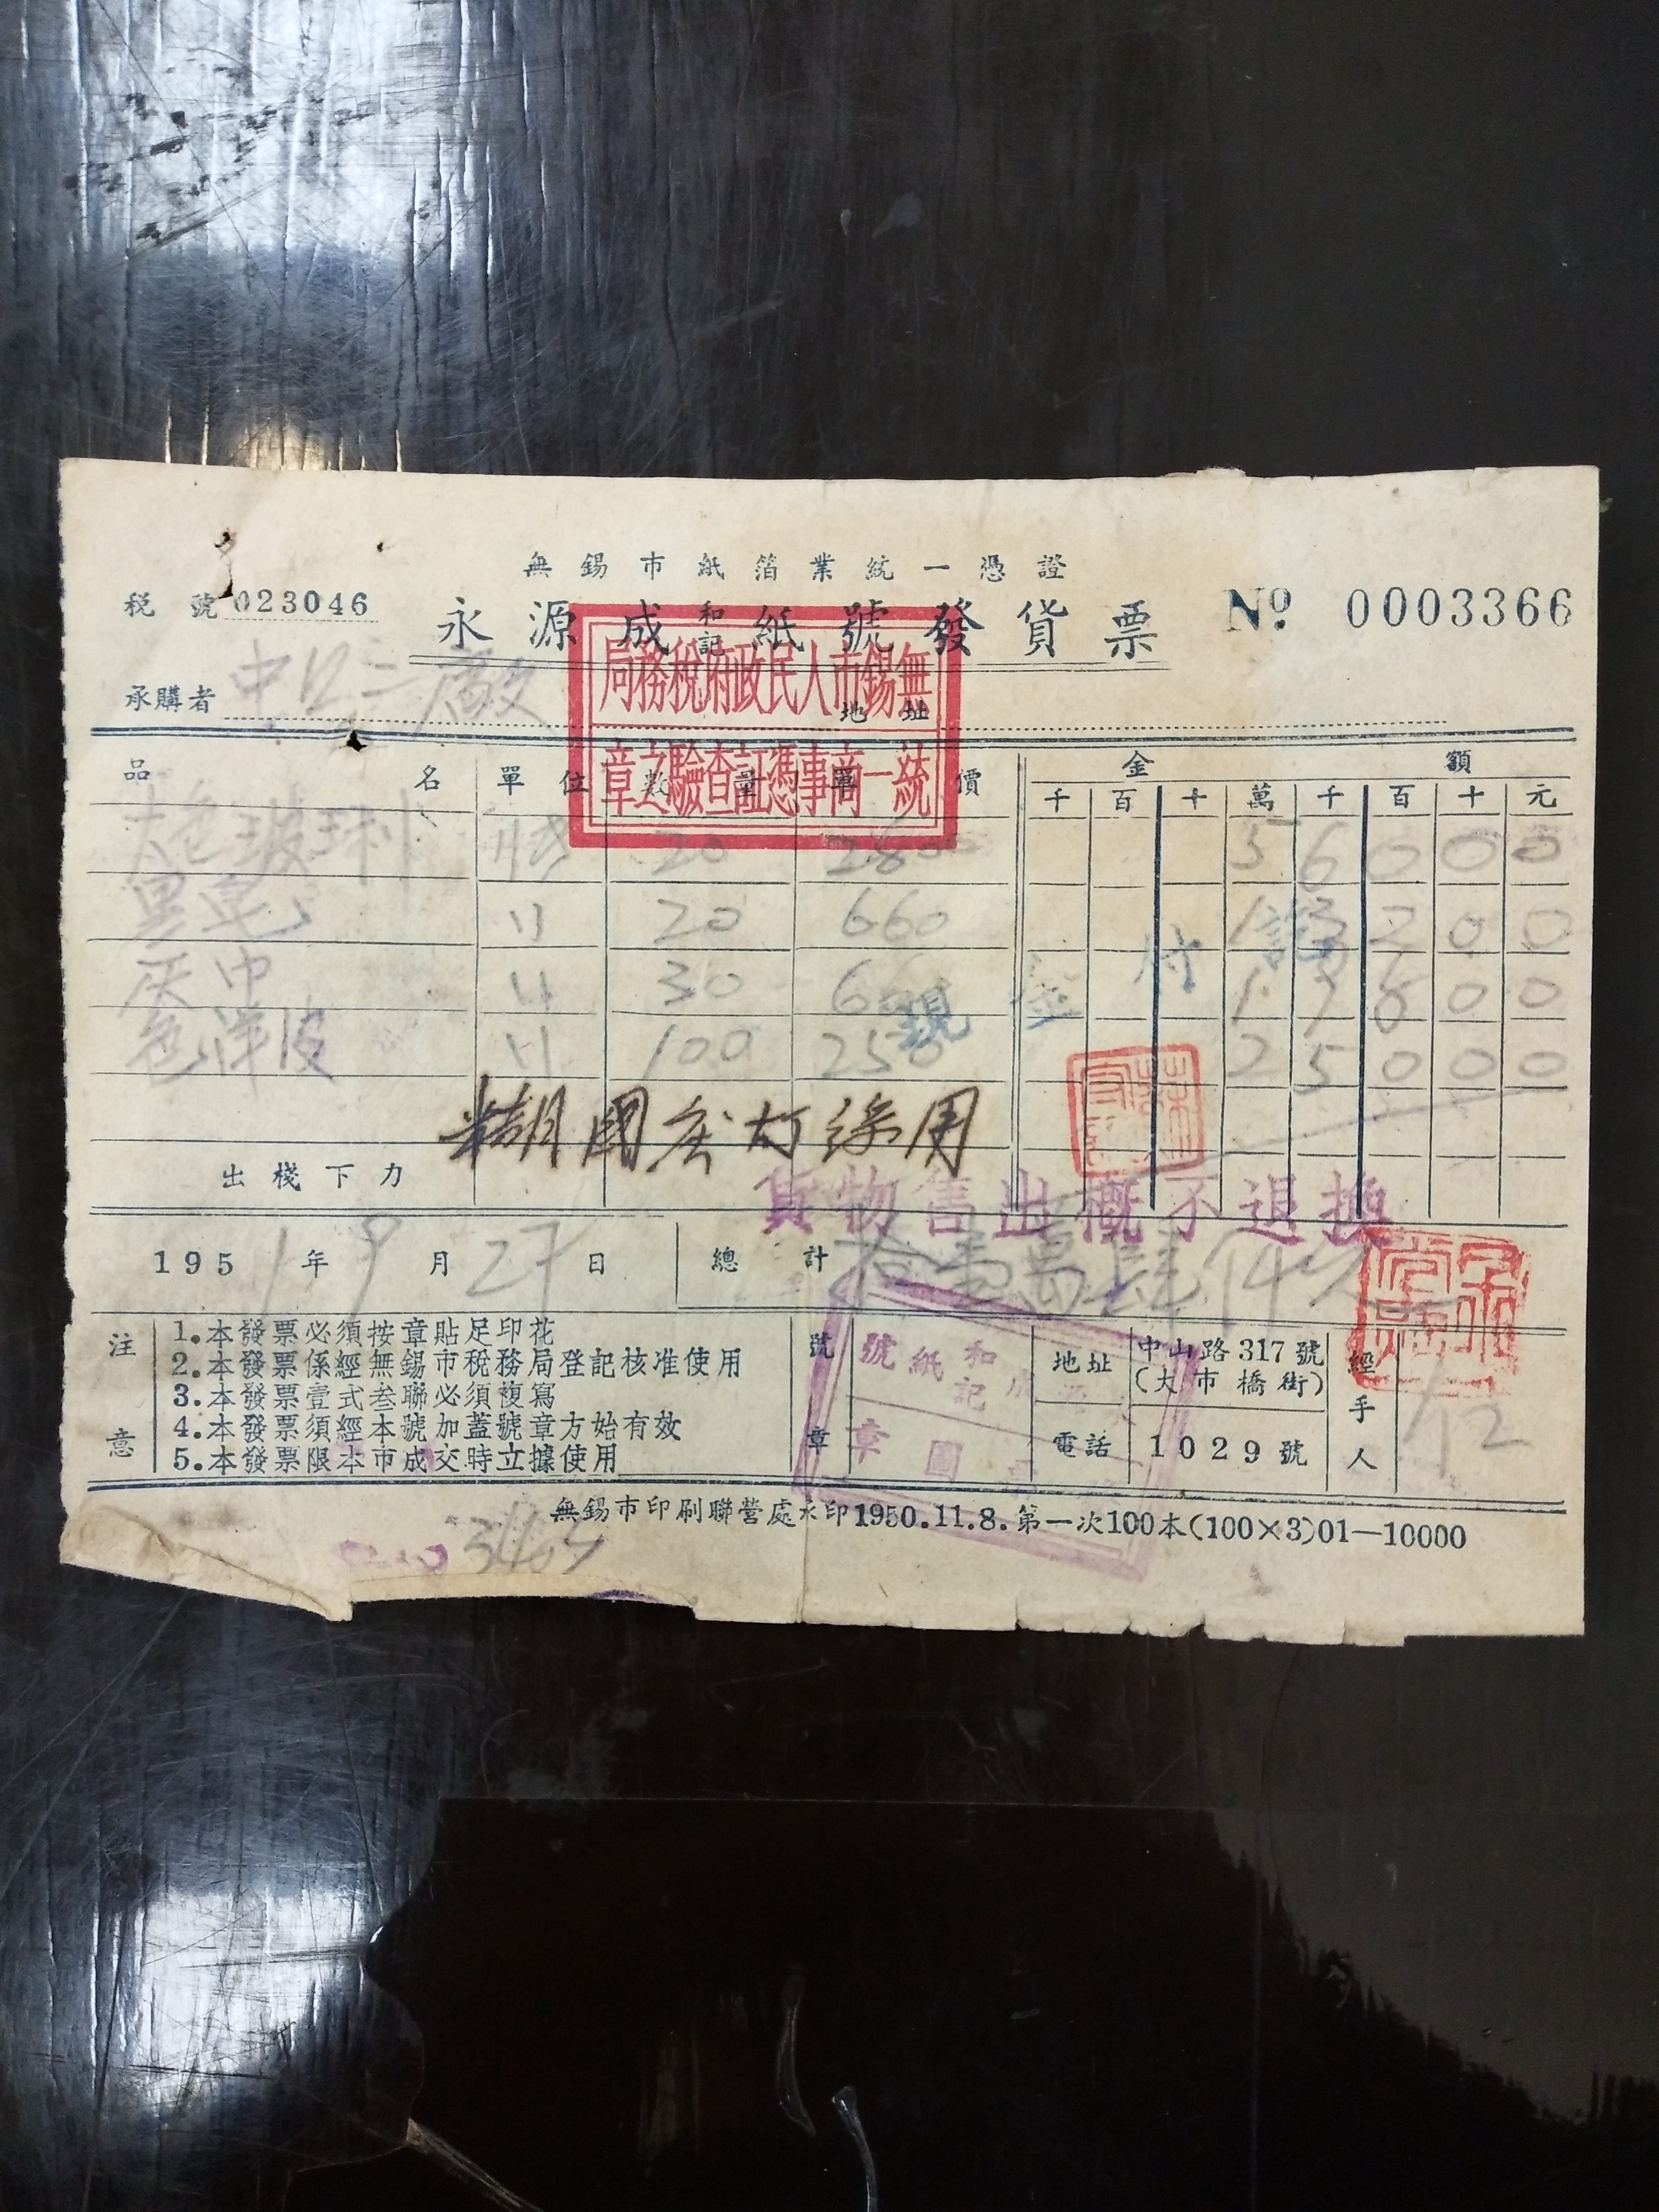 無錫市紙箔業統一憑證
稅號 023046
永源成和記紙號發貨票
Nº 0003366
無錫市人民政府稅務局
統一商事憑証查驗之章
承購者 中 二廠
地址
品名 單位 數量 單價 金額
千 百 十 萬 千 百 十 元
色玻璃 20 2800 5 6 0 0 0
〃 20 660 1 3 2 0 0
灰巾 〃 30 660 1 9 8 0 0
色洋皮 〃 100 250 2 5 0 0 0
現金付訖
糊國 用
出棧下力
貨物售出概不退換
1951年9月27日 總計 拾壹萬肆仟元
注意
1.本發票必須按章貼足印花
2.本發票係經無錫市稅務局登記核准使用
3.本發票壹式叁聯必須複寫
4.本發票須經本號加蓋號章方始有效
5.本發票限本市成交時立據使用
號章
和記紙號
圖章
地址 中山路317號
(大市橋街)
電話 1029號
經手人
無錫市印刷聯營處承印1950.11.8.第一次100本(100×3)01—10000